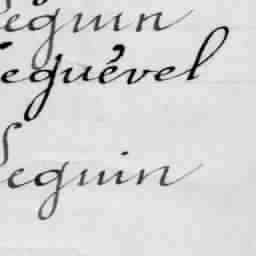 Seguin
Seguével
Seguin